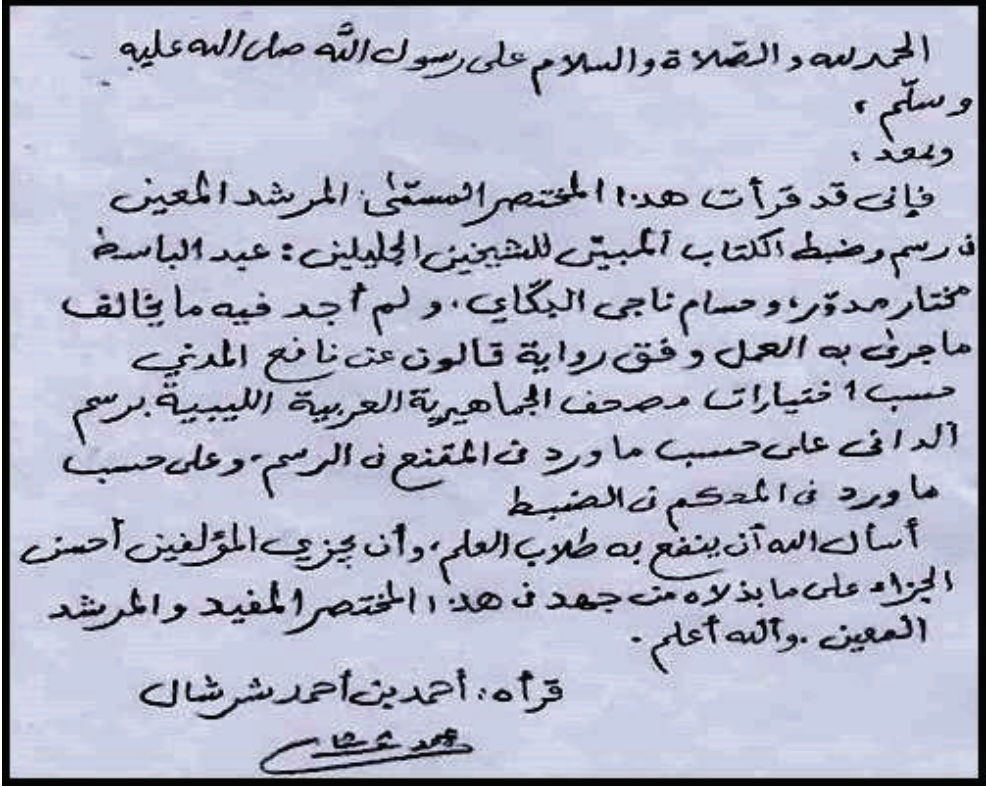 الحمد لله والصّلاة والسلام على رسول اللّٰه صلى الله عليه
وسلّم ،
وبعد :
فإنى قد قرأت هذا المختصر المسمّىٰ: المرشد المعين
فى رسم وضبط الكتاب المبيّن للشيخين الجليلين : عبد الباسط
مختار مدوّر، وحسام ناجى البكّاي، ولم أجد فيه ما يخالف
ما جرىٰ به العمل وفق رواية قالون عن نافع المدني
حسب اختيارات مصحف الجماهيرية العربية الليبية برسم
الدانى على حسب ما ورد فى المقنع فى الرسم، وعلى حسب
ما ورد فى المحكم فى الضبط
أسأل الله أن ينفع به طلاب العلم، وأن يجزي المؤلفين أحسن
الجزاء على ما بذلاه من جهد فى هذا المختصر المفيد والمرشد
المعين . والله أعلم .
قرأه: أحمد بن أحمد شرشال